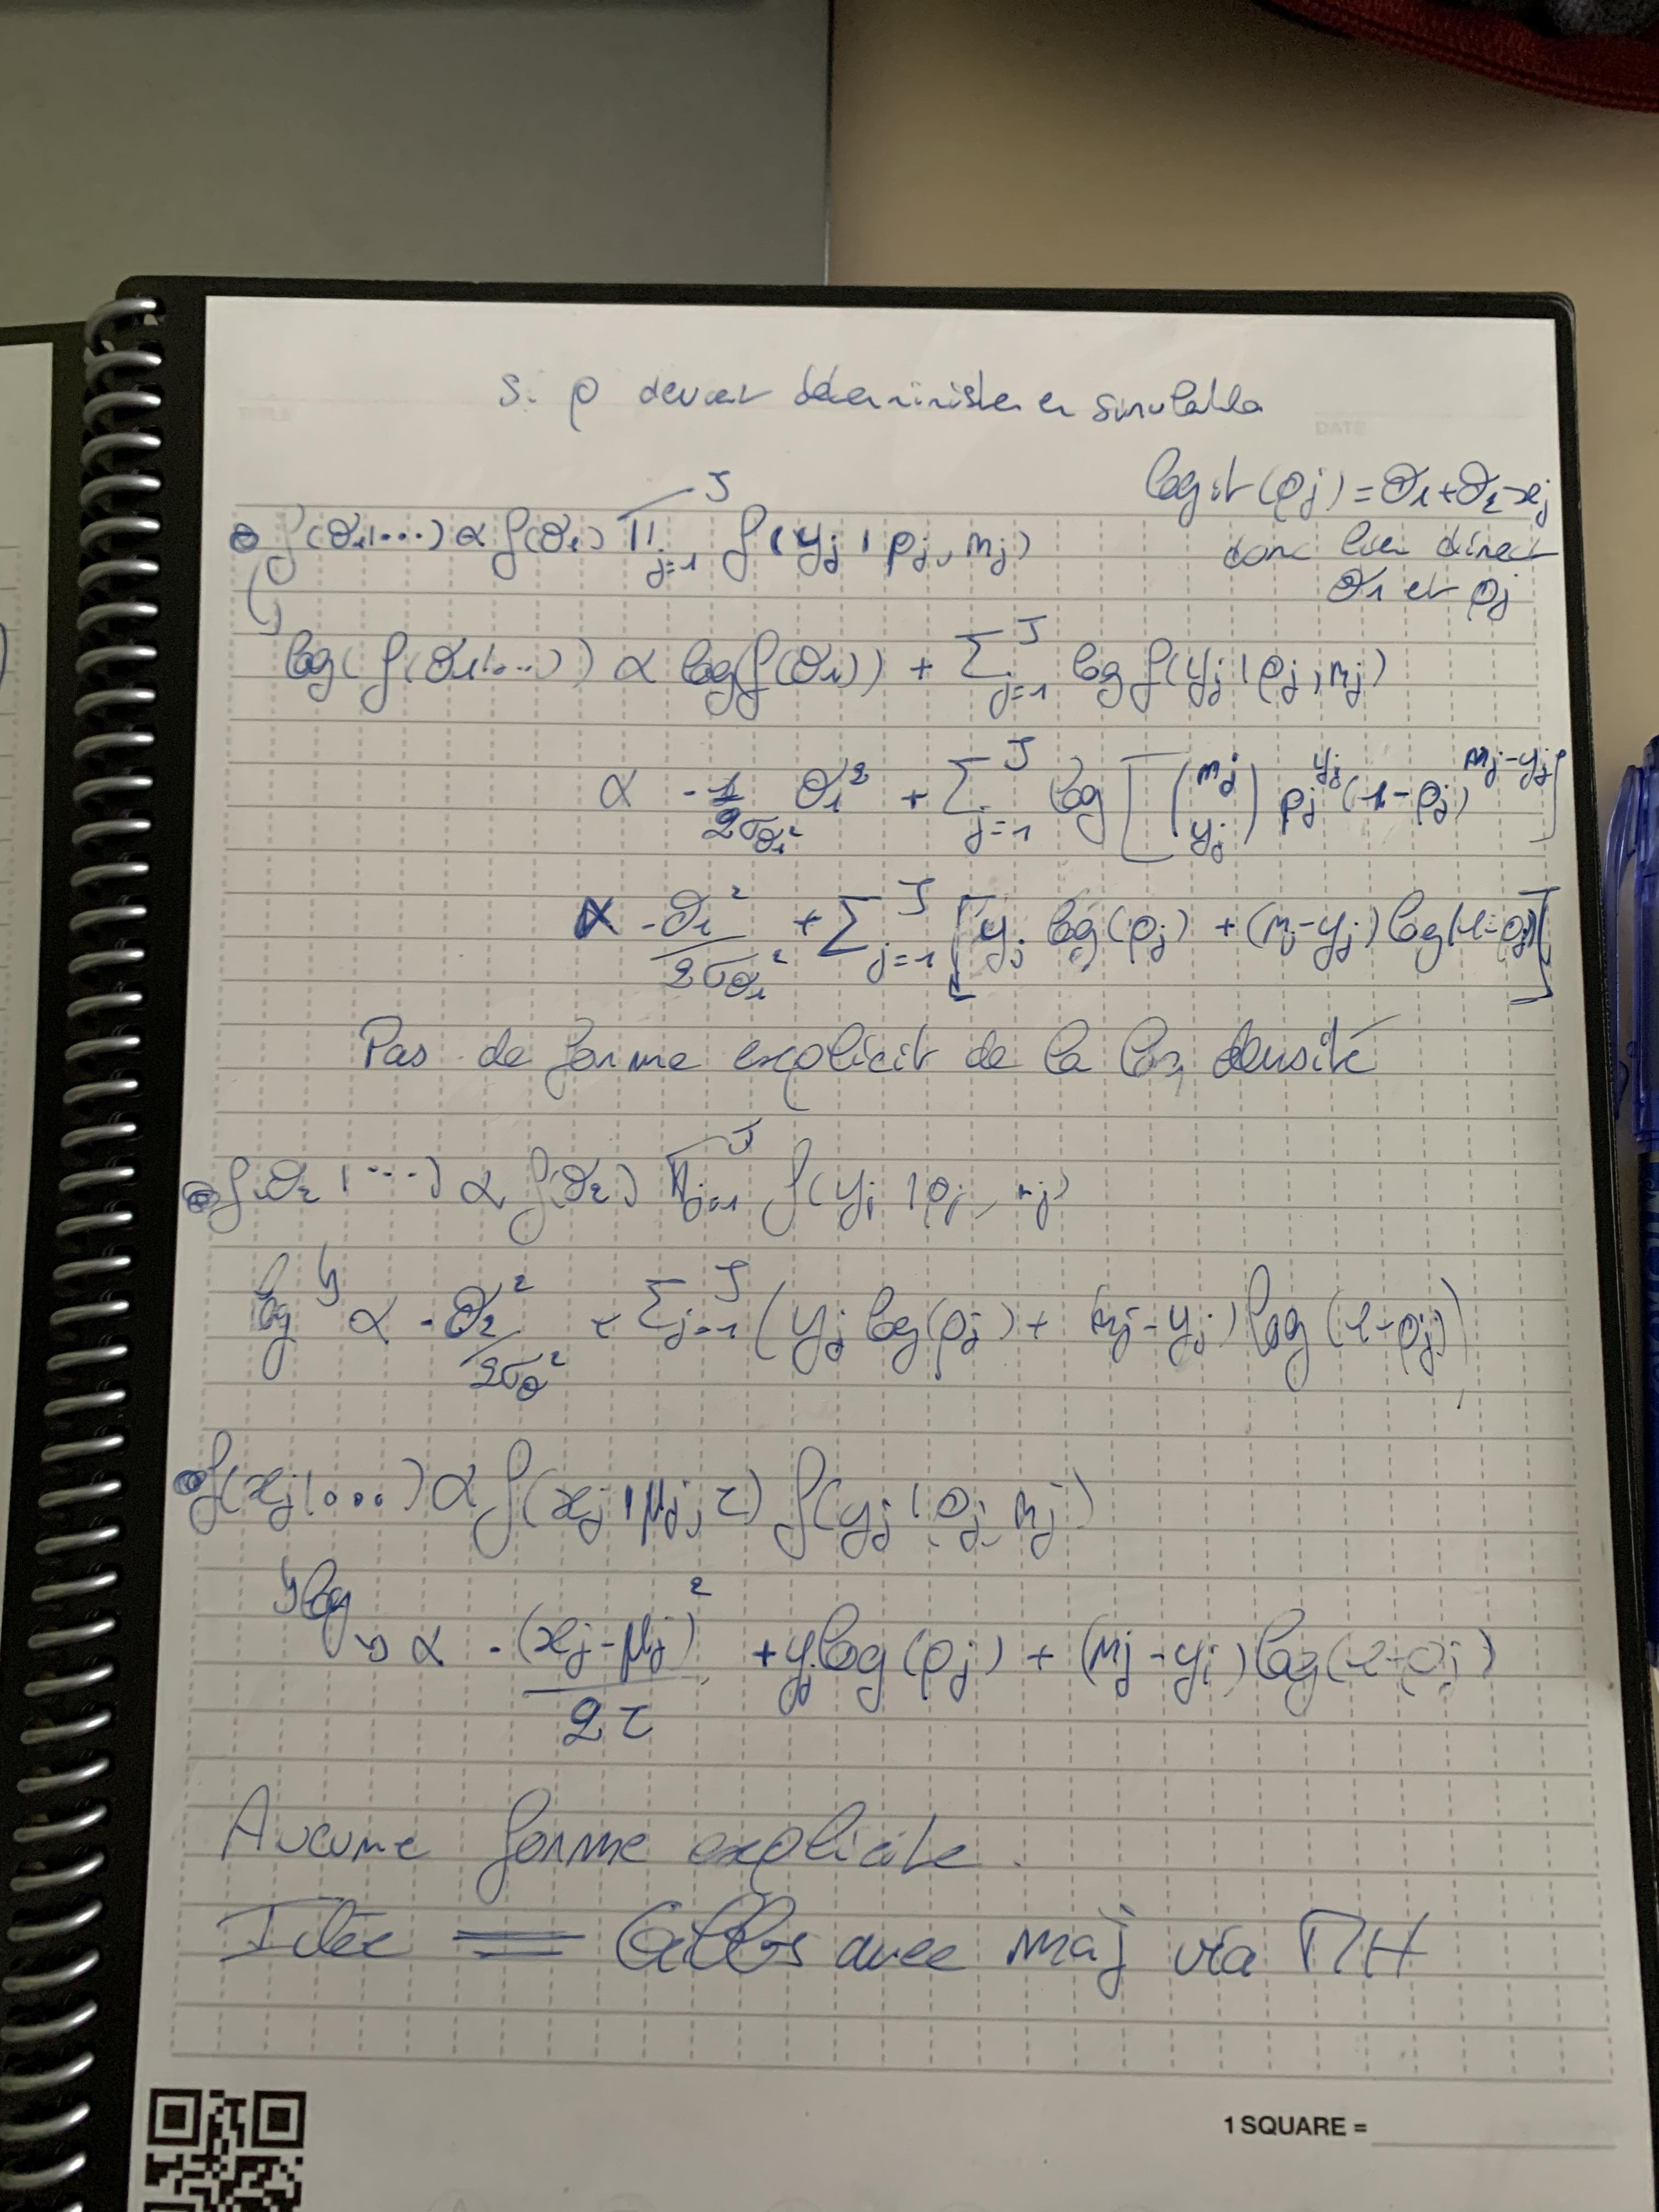 Si p devient déterministe et simulable
DATE
logit(pj) = θ1 + θ2 xj
donc lien direct
θ1 et pj
f(θ1|...) ∝ f(θ1) ∏_{j=1}^{J} f(yj | pj, nj)
↳ log(f(θ1|...)) ∝ log(f(θ1)) + ∑_{j=1}^{J} log f(yj | pj, nj)
∝ -1/(2σ_θ1²) θ1² + ∑_{j=1}^{J} log[(nj yj) pj^yj (1-pj)^(nj-yj)]
∝ -θ1²/(2σ_θ1²) + ∑_{j=1}^{J} [yj log(pj) + (nj-yj) log(1-pj)]
Pas de forme explicit de la densité
f(θ2|...) ∝ f(θ2) ∏_{j=1}^{J} f(yj | pj, nj)
log ↳ ∝ -θ2²/(2σ_θ²) + ∑_{j=1}^{J} (yj log(pj) + (nj-yj) log(1-pj))
f(xj|...) ∝ f(xj | μj, τ) f(yj | pj, nj)
↳ log
↳ ∝ -(xj-μj)²/(2τ) + yj log(pj) + (nj-yj) log(1-pj)
Aucune forme explicite.
Idée = Gibbs avec màj via MH
1 SQUARE =